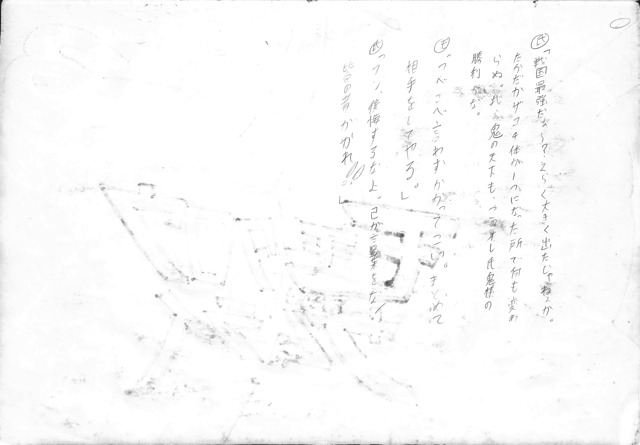 氏「戦国最強だぁ〜？えらく大きく出たじゃねぇか。
たかだかザコ4体が1つになった所で何も変わ
らぬ。我ら鬼の天下も、この オレ氏鬼様の
勝利だな。
「つべこべ言わずかかってこい。まとめて
相手をしてやる。」
「フン、後悔するなよ。己が言葉をな。
皆の者かかれ!!」